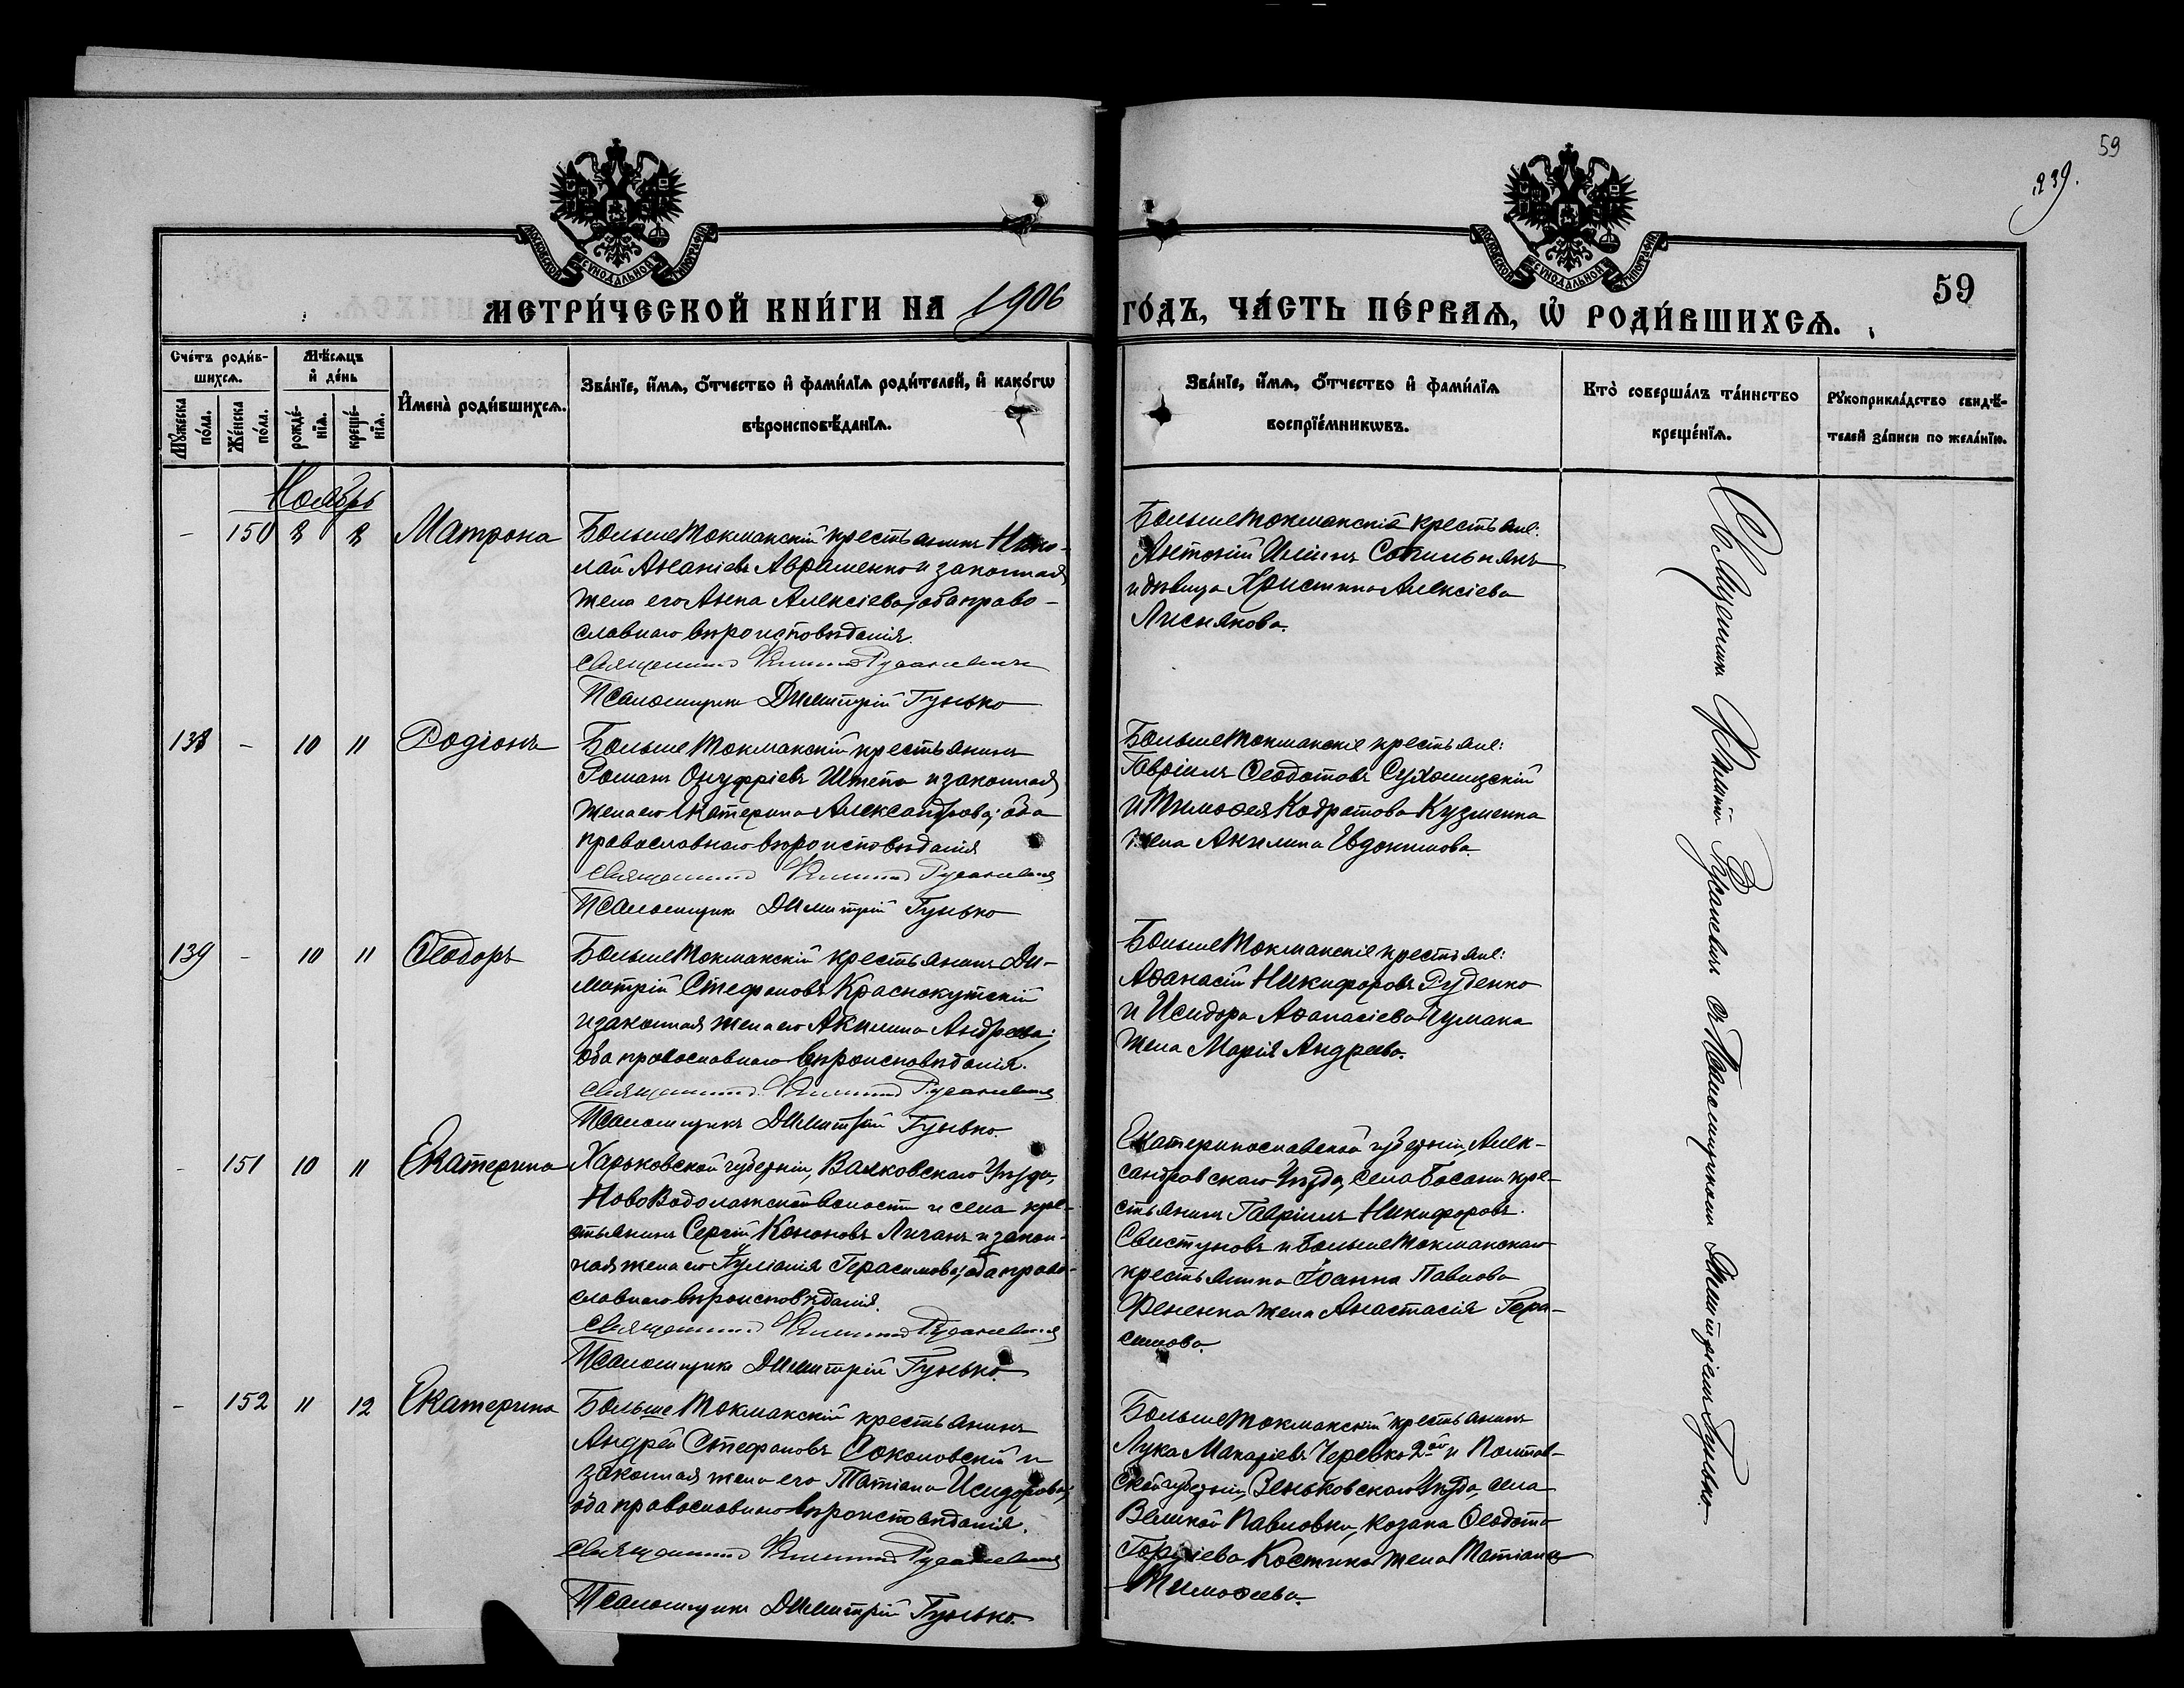 59
239.
МОСКОВСКОЙ СУНОДАЛЬНОЙ ТИПОГРАФІИ
МОСКОВСКОЙ СУНОДАЛЬНОЙ ТИПОГРАФІИ
МЕТРИ́ЧЕСКОЙ КНИ́ГИ НА 1906 ГО́ДЪ, ЧА́СТЬ ПЕ́РВАѦ, Ѡ РОДИ́ВШИХСѦ.
59
Сче́тъ роди́в-
шихсѧ.
Мꙋ́жеска по́ла.
Же́нска по́ла.
Мѣ́сѧцъ
и де́нь
рожде́-
нїѧ.
креще́-
нїѧ.
И҆мена̀ роди́вшихсѧ.
Зва́нїе, и҆́мѧ, ѻ҆́тчество и҆ фами́лїѧ роди́телей, и҆ како́гѡ
вѣроисповѣ́данїѧ.
Зва́нїе, и҆́мѧ, ѻ҆́тчество и҆ фами́лїѧ
воспрїе́мникѡвъ.
Кто̀ соверша́лъ та́инство
креще́нїѧ.
Рꙋкоприкла́дство свидѣ́-
телей за́писи по жела́нїю.
Ноябрь
- 150 8 8 Матрона
БольшеТокмакскій крестьянинъ Нико-
лай Ананіевъ Авраменко и законная
жена его Анна Алексіева; оба право-
славнаго вѣроисповѣданія.
Священникъ Климентъ Русаневичъ
Псаломщикъ Димитрій Гунько
БольшеТокмакскіе крестьяне:
Антоній Ильинъ Сопильнякъ
и дѣвица Христина Алексіева
Лиснякова.
138 - 10 11 Родіонъ
БольшеТокмакскій крестьянинъ
Романъ Онуфріевъ Штепа и законная
жена его Екатерина Александрова; оба
православнаго вѣроисповѣданія
Священникъ Климентъ Русаневичъ
Псаломщикъ Димитрій Гунько
БольшеТокмакскіе крестьяне:
Гавріилъ Ѳеодотовъ
и Тимоѳея Кодратова Кузменка
жена Акилина Евдокимова.
139 - 10 11 Ѳеодоръ
БольшеТокмакскій крестьянинъ Ди-
митрій Стефановъ Краснокутскій
и законная жена его Акилина Андреева;
оба православнаго вѣроисповѣданія.
Священникъ Климентъ Русаневичъ
Псаломщикъ Димитрій Гунько.
БольшеТокмакскіе крестьяне:
Аѳанасій Никифоровъ Руденко
и Исидора Аѳанасіева Чумака
жена Марія Андреева.
- 151 10 11 Екатерина
Харьковской губерніи, Валковскаго уѣзда,
НовоВодолажской волости и села кре-
стьянинъ Сергій Кононовъ Личанъ и закон-
ная жена его Іуліанія Герасимова; оба право-
славнаго вѣроисповѣданія.
Священникъ Климентъ Русаневичъ
Псаломщикъ Димитрій Гунько.
Екатеринославской губерніи, Алек-
сандровскаго уѣзда, села Басани кре-
стьянинъ Гавріилъ Никифоровъ
Свистуновъ и БольшеТокмакскаго
крестьянина Іоанна Павлова
Фененка жена Анастасія Гера-
симова.
- 152 11 12 Екатерина
БольшеТокмакскій крестьянинъ
Андрей Стефановъ Соколовскій и
законная жена его Татіана Исидорова;
оба православнаго вѣроисповѣданія.
Священникъ Климентъ Русаневичъ
Псаломщикъ Димитрій Гунько.
БольшеТокмакскій крестьянинъ
Лука Макаріевъ Черевко 2ой и Полтав-
ской губерніи, Зеньковскаго уѣзда, села
Великой Павловки, козака Ѳеодота
Гордіева Костика жена Татіана
Тимоѳеева.
Священникъ Климентъ Русаневичъ съ Псаломщикомъ Димитріемъ Гунько.